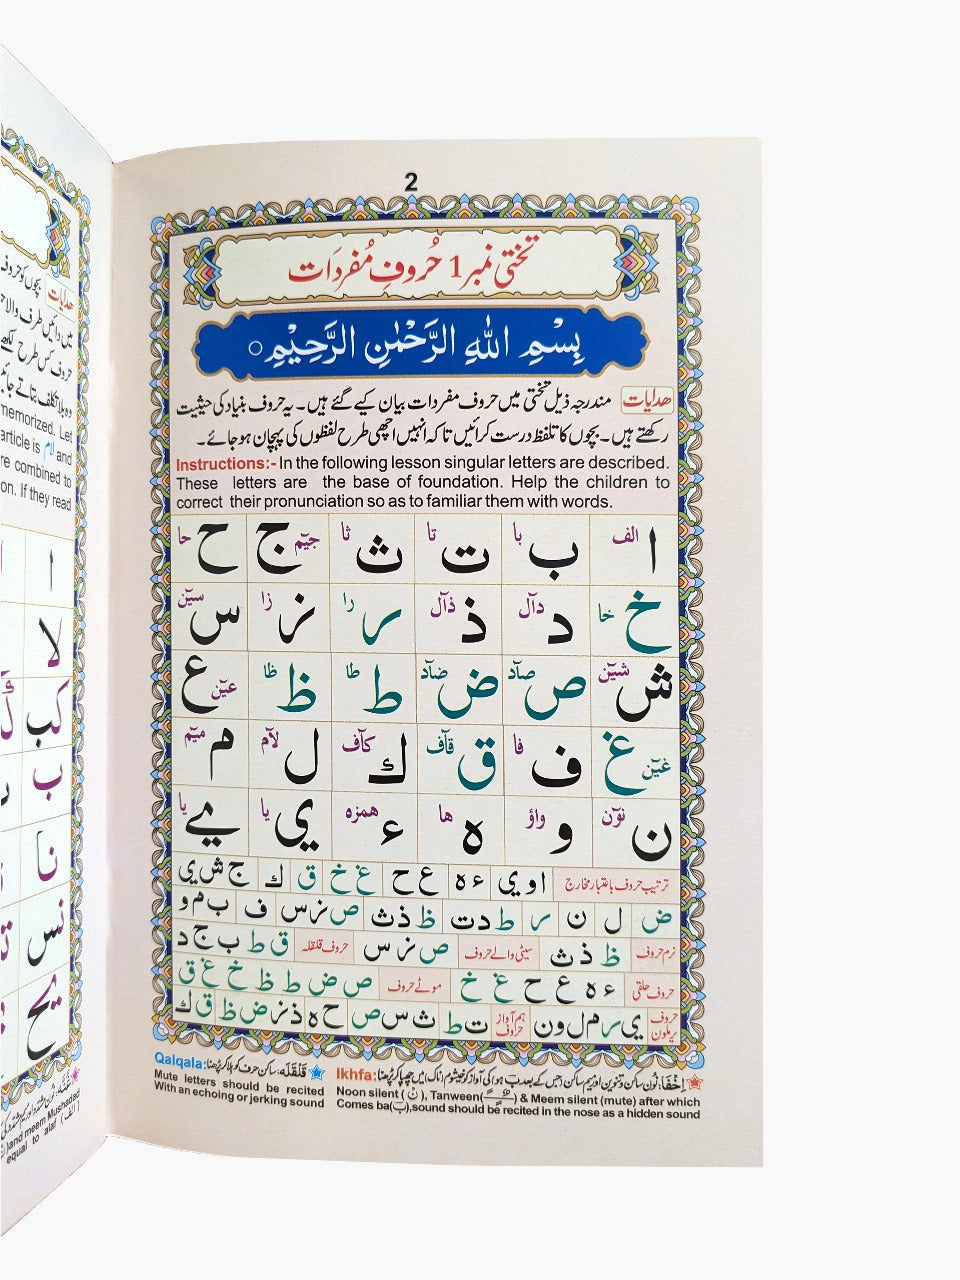 2
تختی نمبر 1 حُروفِ مُفردَات
بِسْمِ اللّٰهِ الرَّحْمٰنِ الرَّحِيْمِ ○
هدایات مندرجہ ذیل تختی میں حروف مفردات بیان کیے گئے ہیں۔ یہ حروف بنیاد کی حیثیت
رکھتے ہیں۔ بچوں کا تلفظ درست کرائیں تاکہ انہیں اچھی طرح لفظوں کی پہچان ہو جائے۔
Instructions:- In the following lesson singular letters are described.
These letters are the base of foundation. Help the children to
correct their pronunciation so as to familiar them with words.
ا الف ب با ت تا ث ثا ج جیٓم ح حا
خ خا د دآل ذ ذآل ر را ز زا س سیٓن
ش شیٓن ص صآد ض ضآد ط طا ظ ظا ع عیٓن
غ غیٓن ف فا ق قآف ك کآف ل لآم م میٓم
ن نوٓن و واؤ ه ها ء همزه ي یا ے یا
ترتیب حروف باعتبار مخارج ا و ی ء ه ع ح غ خ ق ك ج ش ی
ض ل ن ر ط د ت ظ ذ ث ص ز س ف ب م و
نرم حروف ظ ذ ث سیٹی والے حروف ص ز س حروف قلقلہ ق ط ب ج د
حروف حلقی ء ه ع ح غ خ موٹے حروف ص ض ط ظ خ غ ق
حروف یرملون ی ر م ل و ن ہم آواز حروف ت ط ث س ص ح ه ذ ز ض ظ ق ك
Qalqala: قَلْقَلَه: ساکن حرف کو ہلا کر پڑھنا
Mute letters should be recited
With an echoing or jerking sound
Ikhfa: اِخْفَا: نُون ساکن و تنوین اور میم ساکن جس کے بعد ب ہو اسکی آواز کو خیشوم (ناک) میں چھپا کر پڑھنا
Noon silent (نْ), Tanween( ) & Meem silent (mute) after which
Comes ba(ب),sound should be recited in the nose as a hidden sound
هدایات بچوں کو حروف
میں دائیں طرف والا
حروف کس طرح لکھے
وہ بلا تکلف بتاتے جائیں
memorized. Let
article is لام and
re combined to
on. If they read
ا
لا
كب
ب
نا
نس
یح
)and meem Mushadad
equal to alaf (الف)